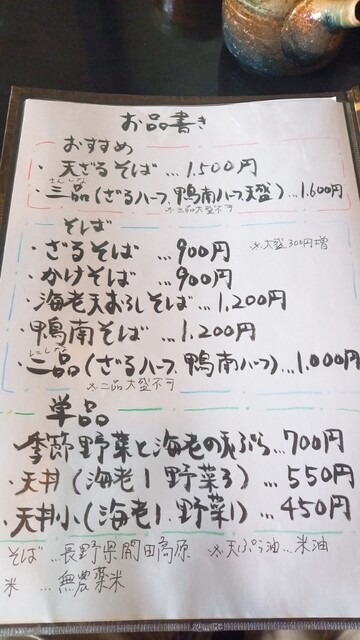 お品書き
おすすめ
・天ざるそば …1,500円
さんしな
・三品(ざるハーフ、鴨南ハーフ、天盛)…1,600円
※三品大盛不可
そば
・ざるそば …900円 ※大盛300円増
・かけそば …900円
・海老天おろしそば…1,200円
・鴨南そば …1,200円
にしな
・二品(ざるハーフ、鴨南ハーフ)…1,000円
※二品大盛不可
単品
・季節野菜と海老の天ぷら…700円
・天丼(海老1 野菜3)…550円
・天丼小(海老1、野菜1)…450円
そば …長野県開田高原 ※天ぷら油…米油
米 …無農薬米